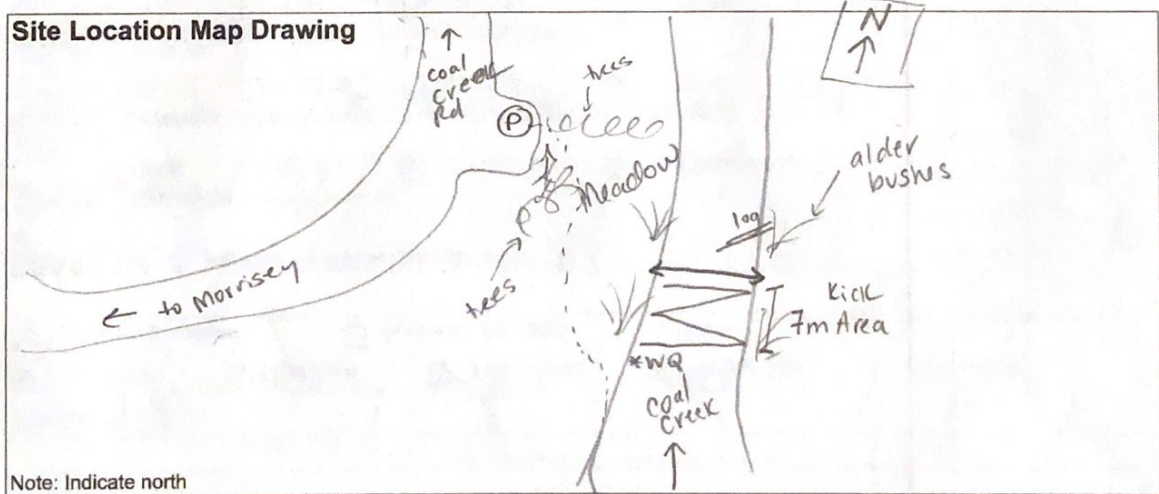 Site Location Map Drawing
N
coal
creek
Rd
trees
P
Meadow
alder
bushes
log
trees
← to Morrisey
Kick
7m Area
*WQ
Coal
Creek
Note: Indicate north